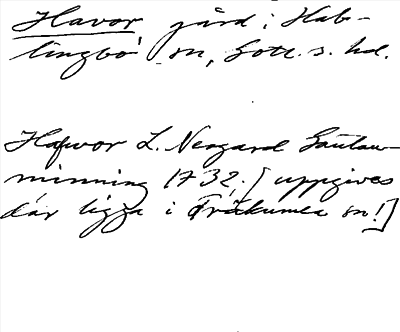 Havor gård i Hab-
lingbo sn, Gotl. s. hd.
Hafwor L. Neogard Gautau-
minning 1732. [uppgives
där ligga i Fröikumla sn!]